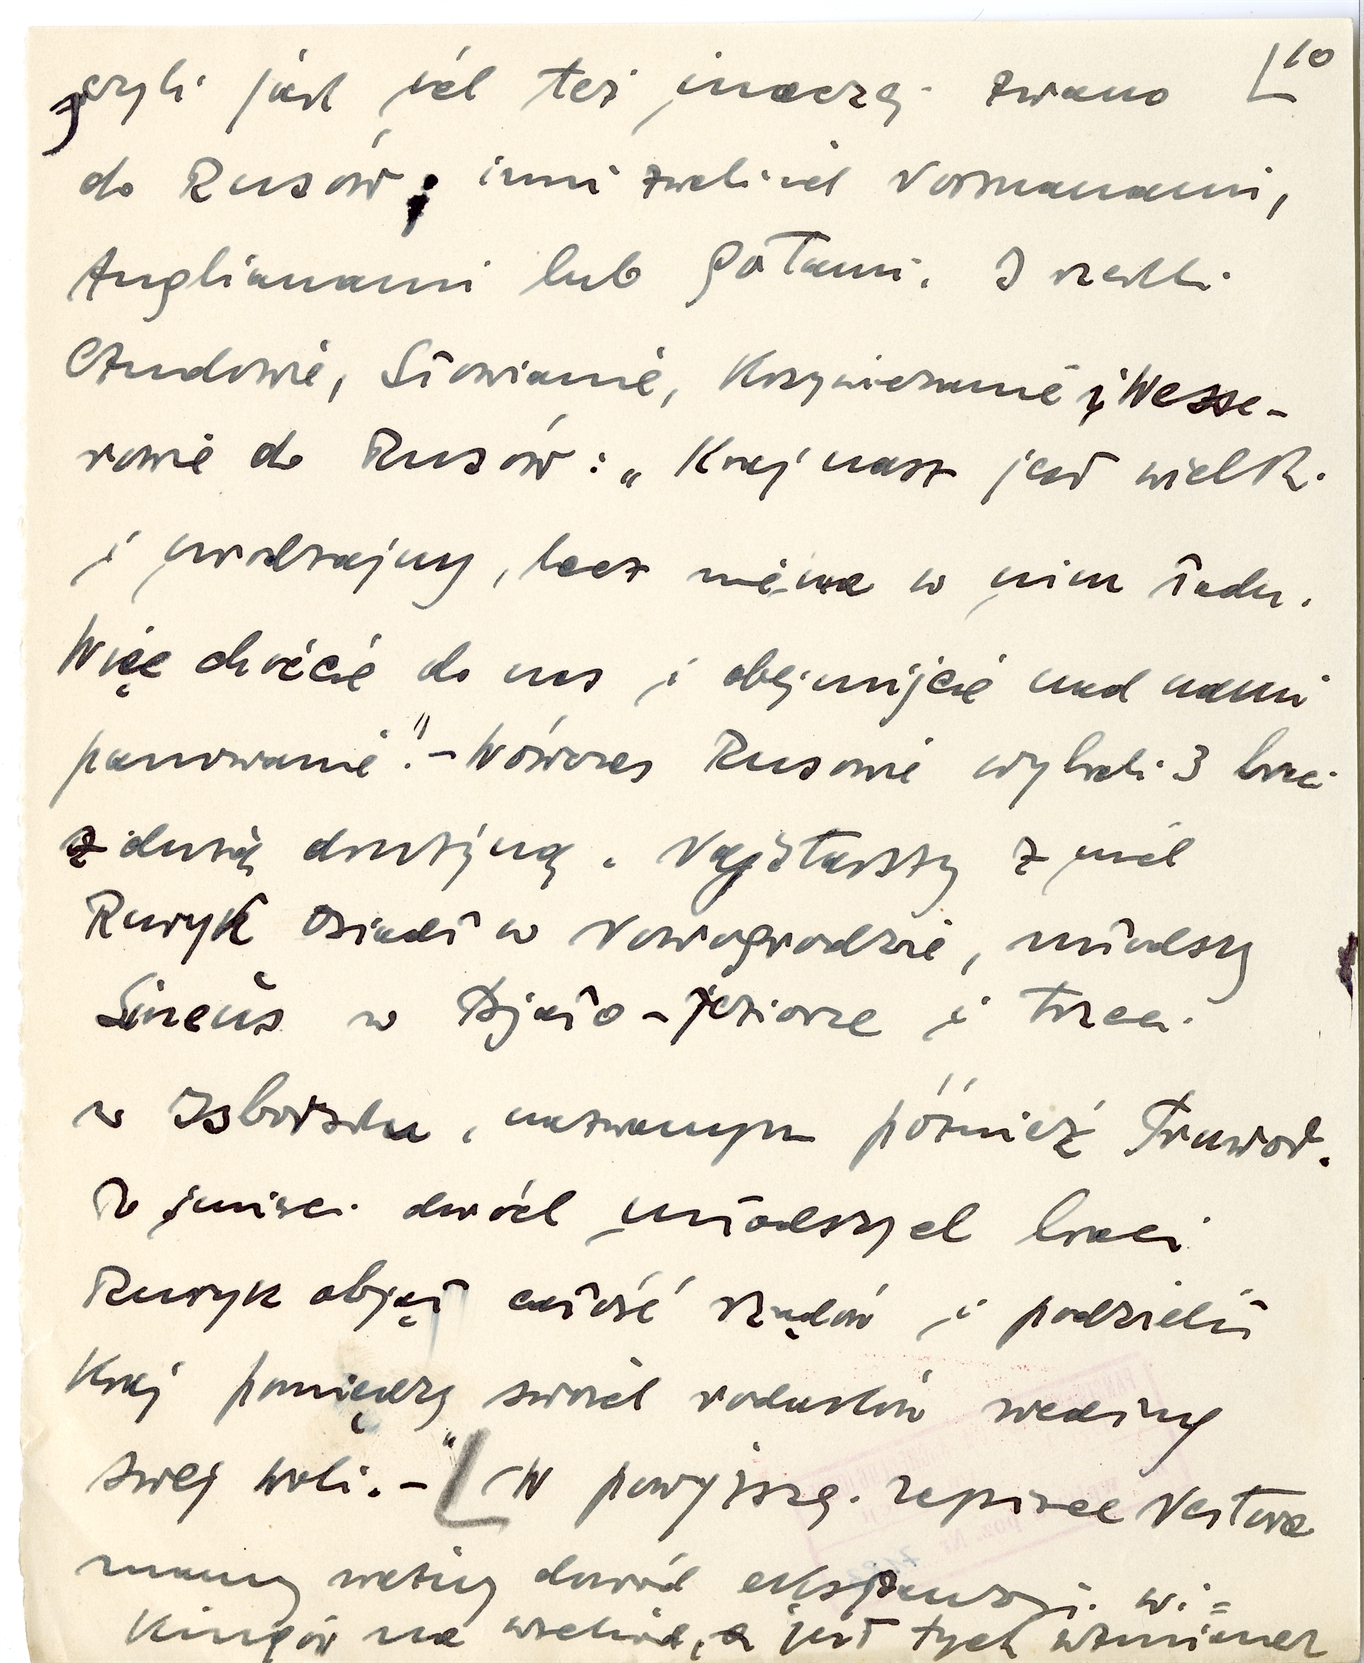 czyli jak ich też inaczej zwano
10
do Rusów; inni zwali ich Normanami,
Anglianami lub Gotami. I rzekli
Czudowie, Słowianie, Krzywiczanie i Wesse-
rowie do Rusów: „Kraj nasz jest wielki
i urodzajny, lecz niema w nim ładu.
Więc chodźcie do nas i obejmijcie nad nami
panowanie". - Wówczas Rusowie wybrali 3 braci
z dużą drużyną. Najstarszy z nich
Ruryk osiadł w Nowogrodzie, młodszy
Sineus w Bjało-jeziorze i trzeci
w Isborsku, nazwanym później Truwor.
Po śmierci dwóch młodszych braci
Ruryk objął całość rządów i podzielił
Kraj pomiędzy swoich rodaków według
swej woli. -" W powyższej zapisce Nestora
mamy ważny dowód ekspanzji wi=
kingów na wschód, a jest tych wzmianek